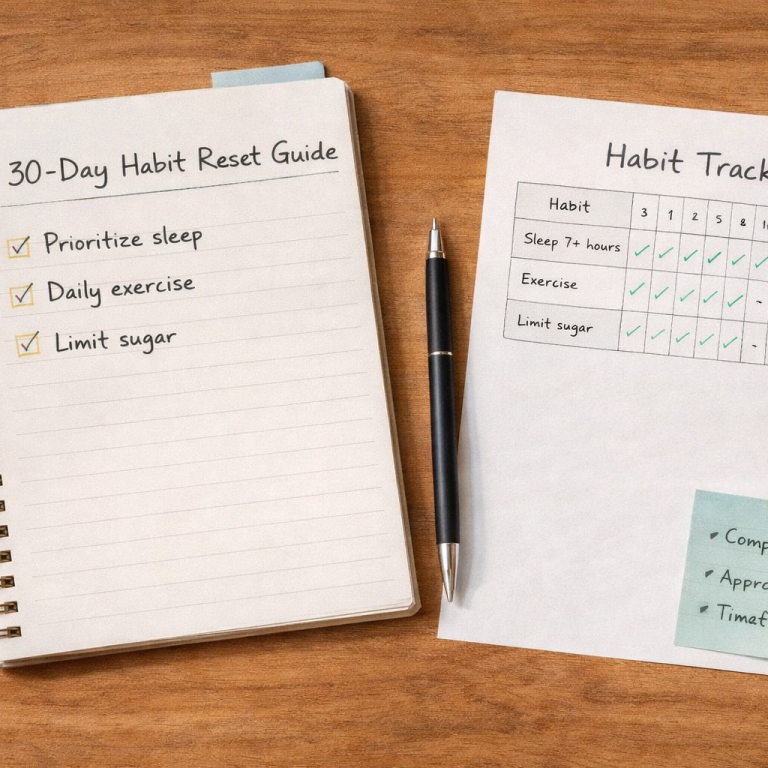 30-Day Habit Reset Guide
Prioritize sleep
Daily exercise
Limit sugar
Habit
Habit 3 1 2 5 8
Sleep 7+ hours
Exercise -
Limit sugar -